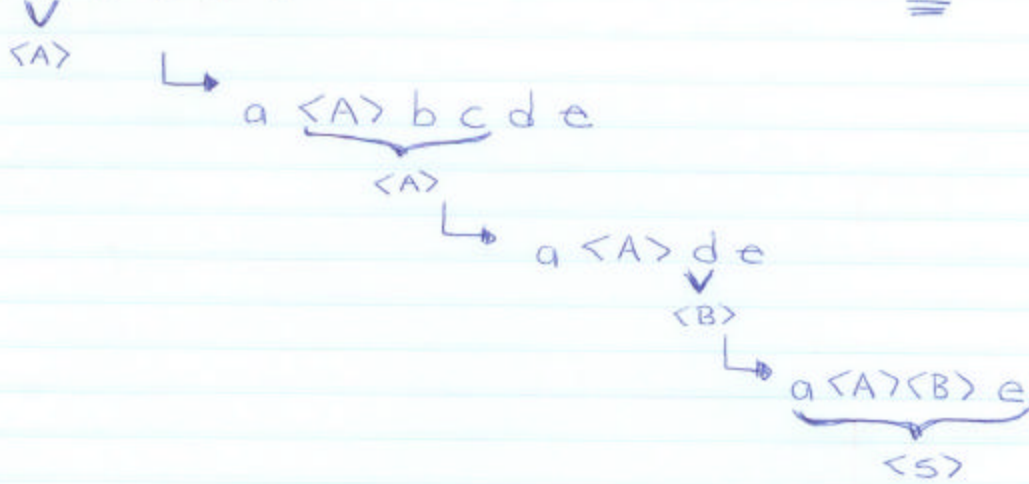 <A>
a <A> b c d e
<A>
a <A> d e
<B>
a <A><B> e
<S>